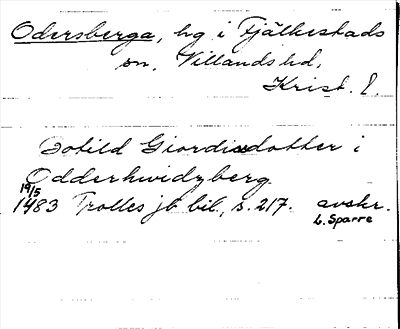 Odersberga, hg i Fjälkestads
sn, Villands hd,
Krist. l.
Botild Giordisdotter i
Odderhwidzberg
19/5
1483 Trolles jb bil, s. 217. avskr.
L. Sparre